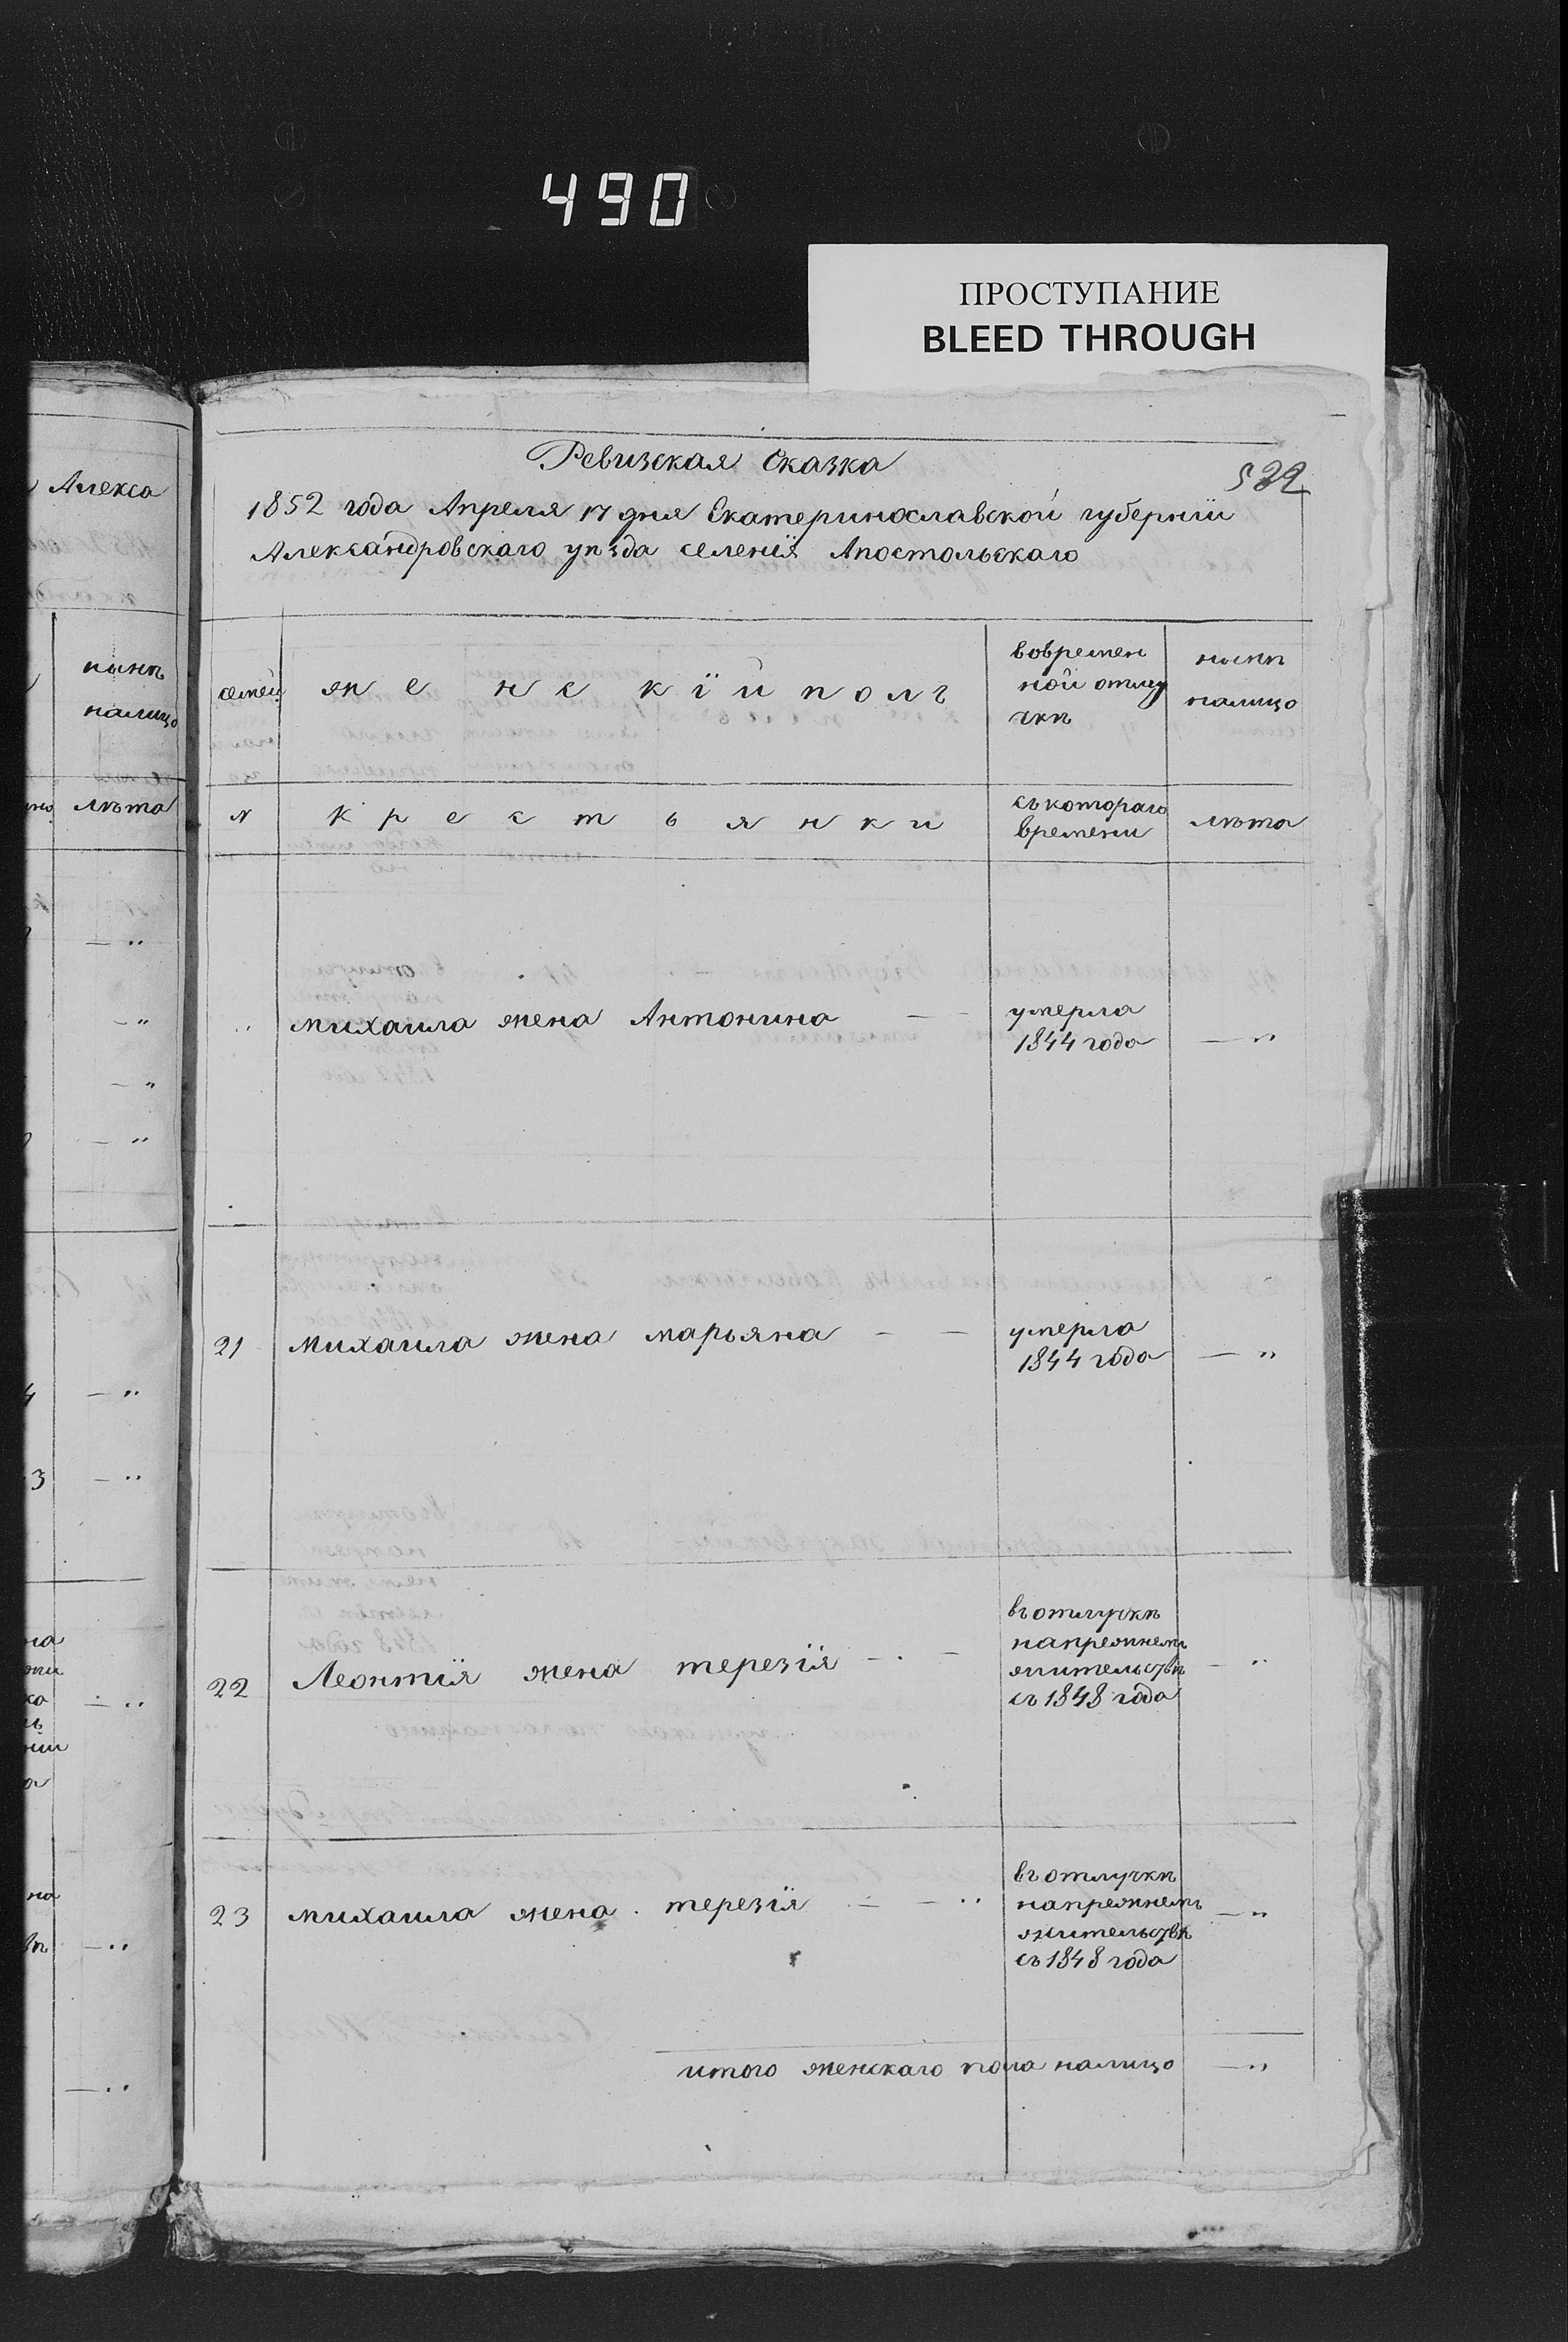 490
ПРОСТУПАНИЕ
BLEED THROUGH
Алекса
нынѣ
налицо
лѣта
Ревизская Сказка
522
1852 года Апреля 17 дня Екатеринославской губернїи
Александровскаго уѣзда селенїя Апостольскаго
семей женскїй полъ вовремен
ной отлу
чкѣ нынѣ
налицо
№ крестьянки съ котораго
времени лѣта
„ михаила жена Антонина — — умерла
1844 года — „
21 михаила жена марьяна — — умерла
1844 года — „
22 Леонтїя жена терезїя — — въ отлучкѣ
напрежнемъ
жительствѣ
съ 1848 года — „
23 михаила жена терезїя — — „ въ отлучкѣ
напрежнемъ
жительствѣ
съ 1848 года — „
итого женскаго пола налицо — „